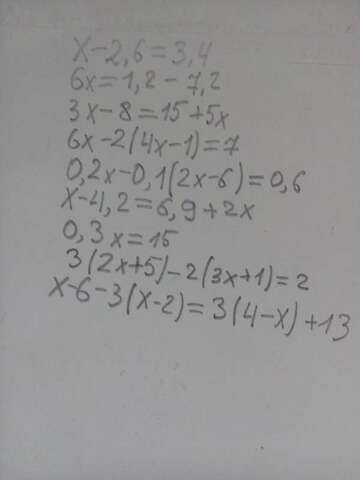 x-2,6=3,4
6x=1,2-7,2
3x-8=15+5x
6x-2(4x-1)=7
0,2x-0,1(2x-6)=0,6
x-4,2=6,9+2x
0,3x=15
3(2x+5)-2(3x+1)=2
x-6-3(x-2)=3(4-x)+13